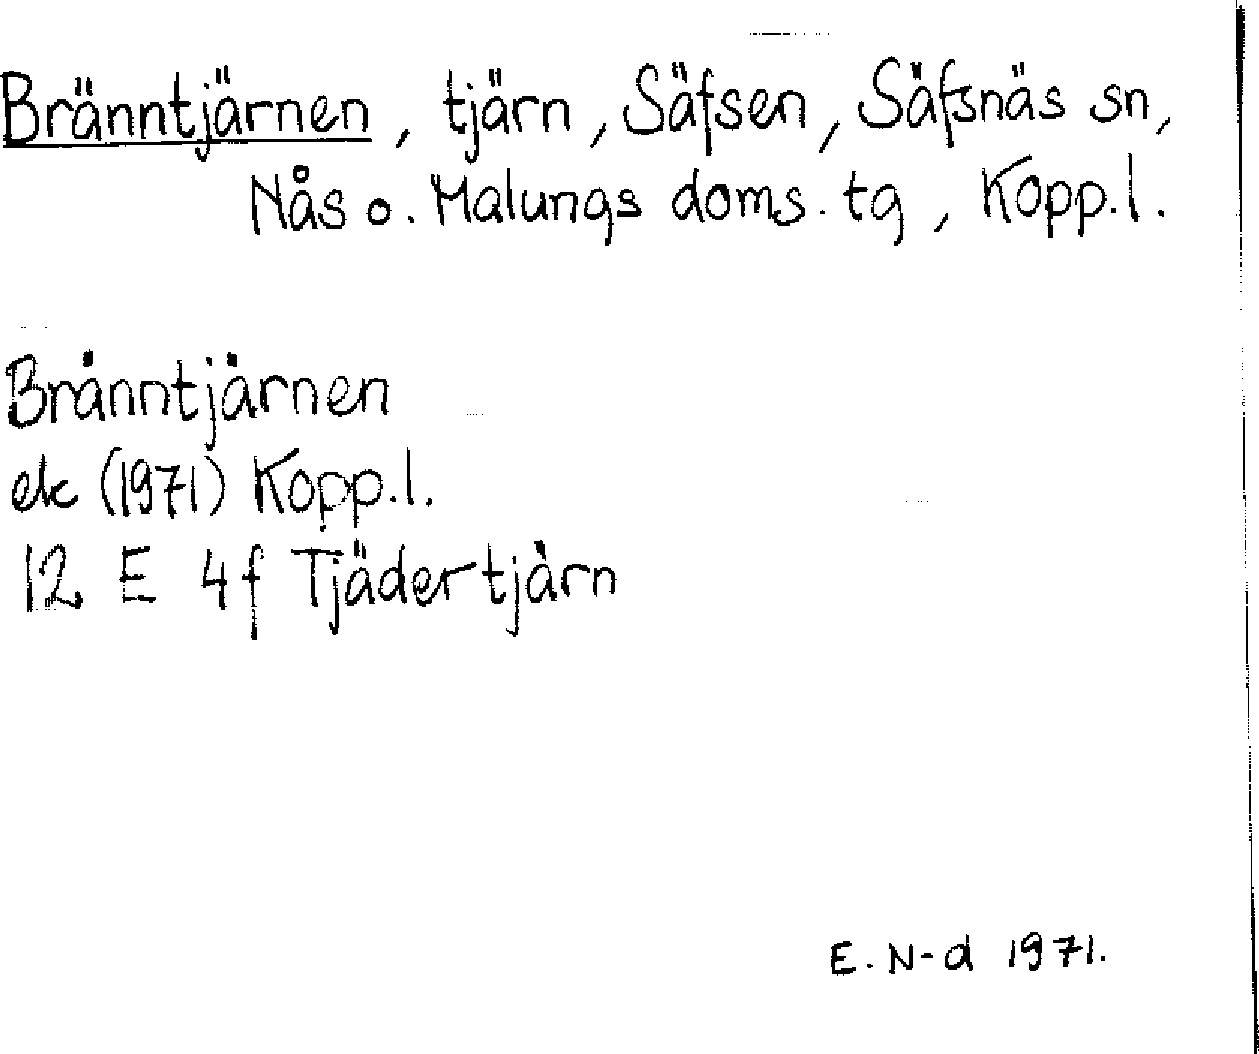 Bränntjärnen, tjärn, Säfsen, Säfsnäs sn,
Nås o. Malungs doms. tg, Kopp. l.
Bränntjärnen
ek (1971) Kopp. l.
12 E 4f Tjädertjärn
E. N-d 1971.